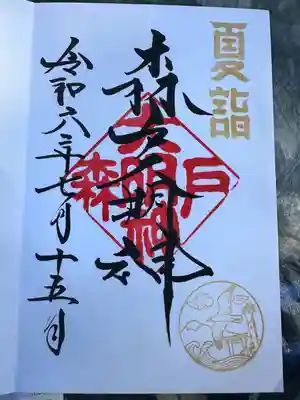 夏詣
森戸大明神
森戸大明神
令和六年七月十五日